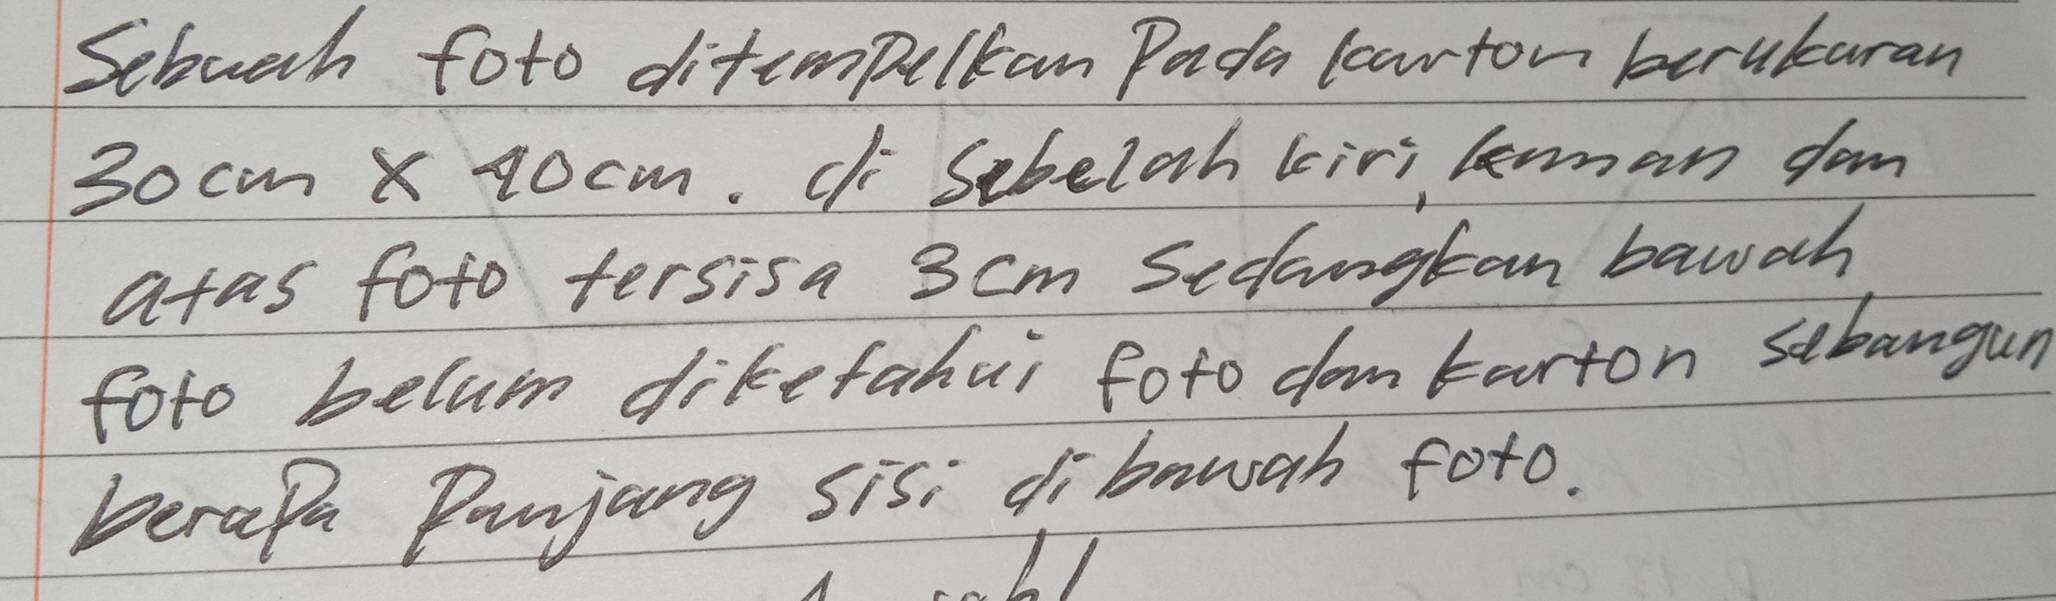 Sebuah foto ditempelkan Pada karton berukuran
30 cm x 40 cm. di sebelah kiri, kanan dan
atas foto tersisa 3 cm sedangkan bawah
foto belum diketahui foto dan karton sebangun
berapa Panjang sisi di bawah foto.